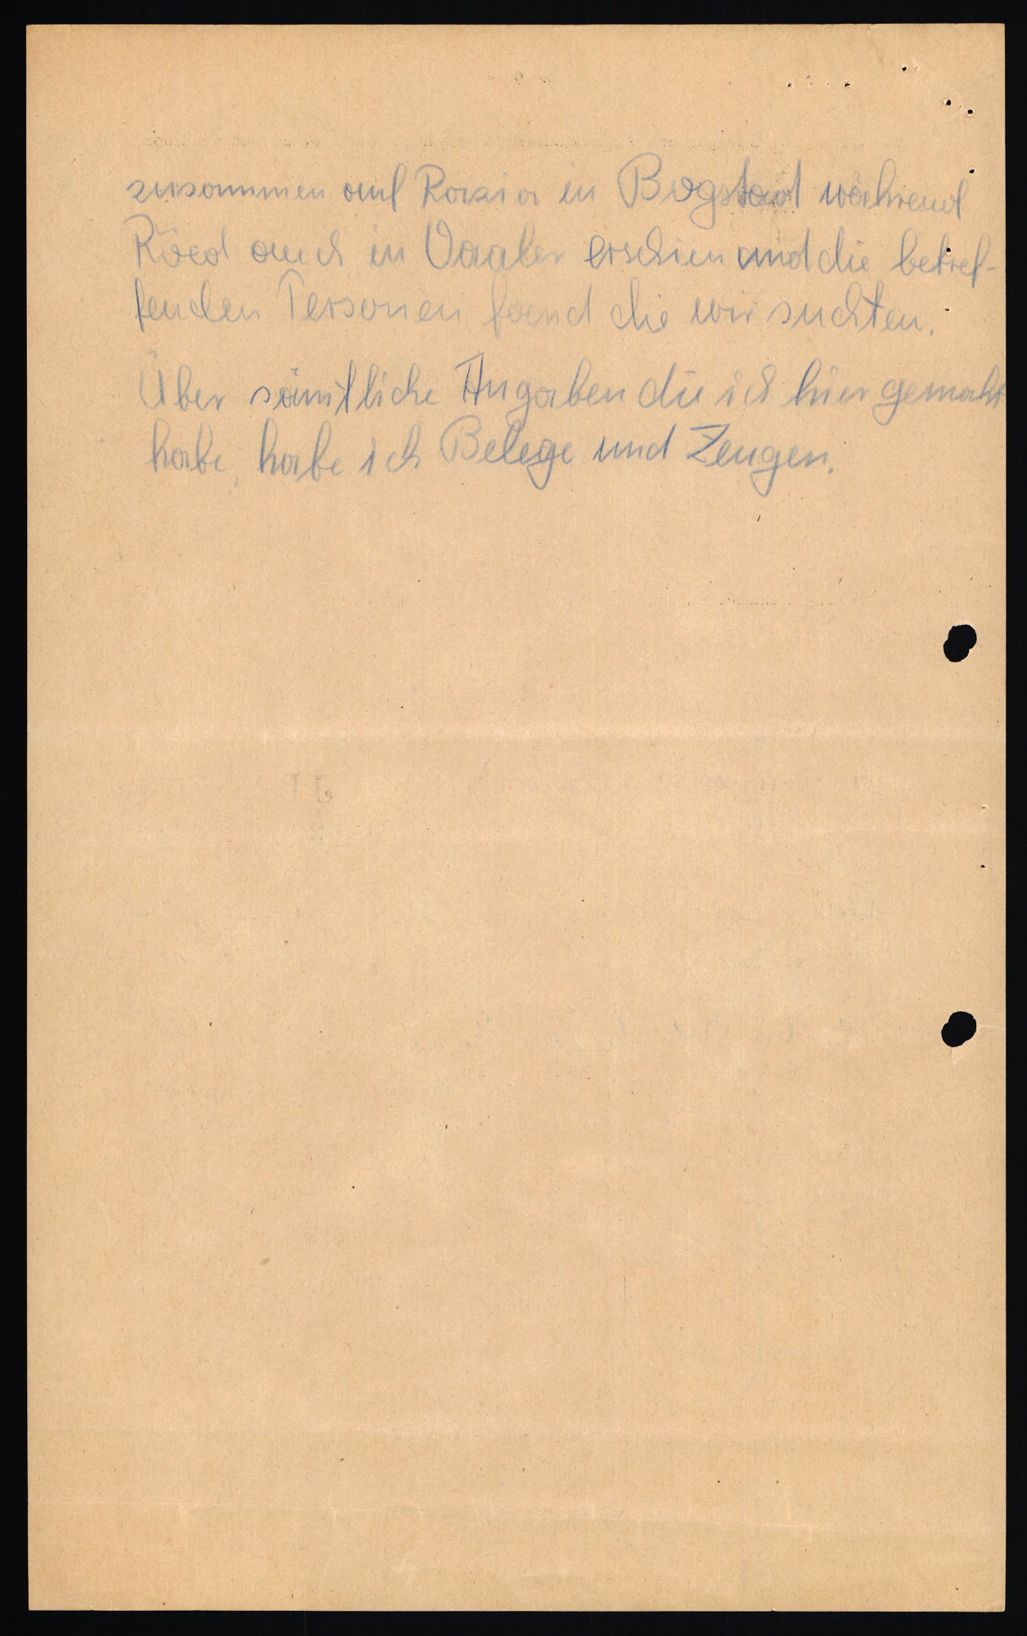 zusammen auf Razzia in Bogstad während
Röed auch in Vaaler erschien und die betref-
fenden Personen fand die wir suchten.
Über sämtliche Angaben die ich hier gemacht
habe, habe ich Belege und Zeugen.